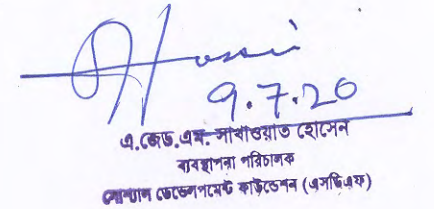 Hossain
9.7.20
এ.জেড.এম. সাখাওয়াত হোসেন
ব্যবস্থাপনা পরিচালক
সোশ্যাল ডেভেলপমেন্ট ফাউন্ডেশন (এসডিএফ)